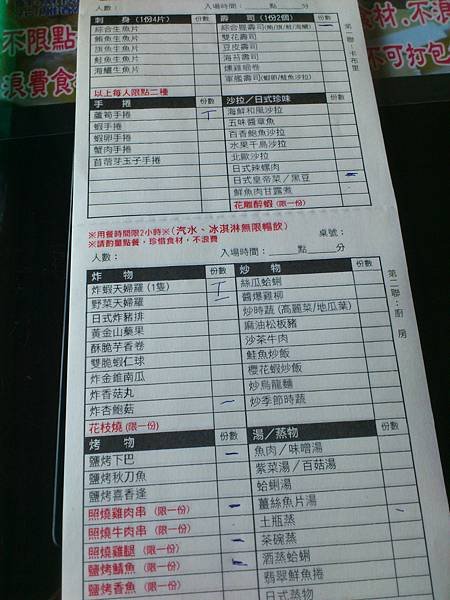 人數： 入場時間： 點 分
刺 身 (1份4片) 份數 壽 司 (1份2個)
綜合生魚片
鮪魚生魚片
旗魚生魚片
鮭魚生魚片
海鱺生魚片
雙花壽司
豆皮壽司
海苔壽司
軍艦壽司(蝦卵/鮭魚沙拉)
以上每人限點二種
手 捲 份數 沙拉/日式珍味
蘆筍手捲
蝦手捲
蝦卵手捲
蟹肉手捲
苜蓿芽玉子手捲
海鮮和風沙拉
五味醬章魚
百香鮑魚沙拉
水果千島沙拉
北歐沙拉
日式辣螺肉
日式皇帝菜/黑豆
鮮魚肉甘露煮
花雕醉蝦 (限一份)
第一聯：卡布里
※用餐時間限2小時※(汽水、冰淇淋無限暢飲)
※請酌量點餐，珍惜食材，不浪費
桌號：
人數： 入場時間： 點 分
炸 物 份數 炒 物
炸蝦天婦羅 (1隻)
野菜天婦羅
日式炸豬排
黃金山藥果
酥脆芋香卷
雙脆蝦仁球
炸金錐南瓜
炸香菇丸
炸杏鮑菇
花枝燒 (限一份)
絲瓜蛤蜊
醬爆雞柳
炒時蔬 (高麗菜/地瓜葉)
麻油松板豬
沙茶牛肉
鮭魚炒飯
櫻花蝦炒飯
炒烏龍麵
炒季節時蔬
第二聯：廚房
烤 物 份數 湯/蒸物
鹽烤下巴
鹽烤秋刀魚
鹽烤喜香逢
照燒雞肉串 (限一份)
照燒牛肉串 (限一份)
照燒雞腿 (限一份)
鹽烤鯖魚 (限一份)
鹽烤香魚 (限一份)
魚肉/味噌湯
紫菜湯/百菇湯
蛤蜊湯
薑絲魚片湯
土瓶蒸
茶碗蒸
酒蒸蛤蜊
翡翠鮮魚捲
日式蒸物
不限點
浪費食
材,不浪
不可打包